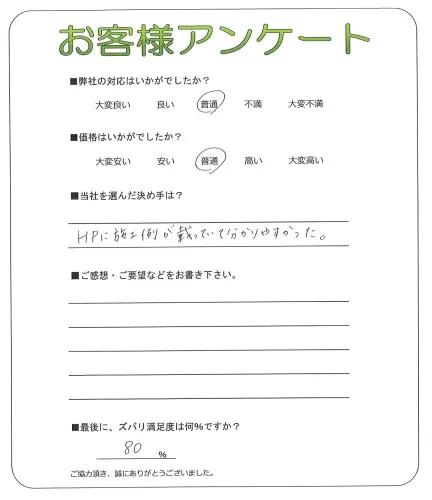 お客様アンケート
■弊社の対応はいかがでしたか？
大変良い　良い　普通　不満　大変不満
■価格はいかがでしたか？
大変安い　安い　普通　高い　大変高い
■当社を選んだ決め手は？
HPに施工例が載っていて分かりやすかった。
■ご感想・ご要望などをお書き下さい。
■最後に、ズバリ満足度は何%ですか？
80 %
ご協力頂き、誠にありがとうございました。